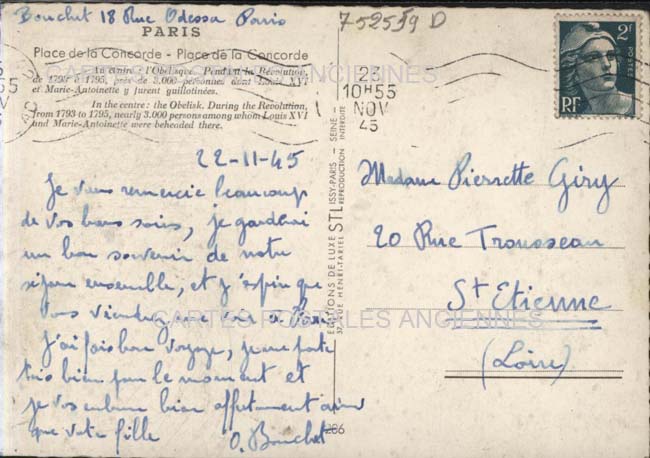 Bouchet 18 Rue Odessa Paris
752559 D
PARIS
Place de la Concorde - Place de la Concorde
Au centre : l'Obélisque. Pendant la Révolution,
de 1793 à 1795, près de 3.000 personnes dont Louis XVI
et Marie-Antoinette y furent guillotinées.
In the centre: the Obelisk. During the Revolution,
from 1793 to 1795, nearly 3.000 persons among whom Louis XVI
and Marie-Antoinette were beheaded there.
22-11-45
Je vous remercie beaucoup
de vos bons soins, je garderai
un bon souvenir de notre
séjour ensemble, et j'espère que
vous viendrez me voir à Paris
J'ai fais bon voyage, je me porte
très bien pour le moment et
je vous embrasse bien affectueusement ainsi
que votre fille O. Bouchet
ÉDITIONS DE LUXE STL ISSY-PARIS - SEINE -
37, RUE HENRI-TARIEL REPRODUCTION INTERDITE
286
10H55
NOV
45
2F
POSTES
RF
Madame Pierrette Giry
20 Rue Trousseau
St Etienne
(Loire)
CARTES POSTALES ANCIENNES
CARTES POSTALES ANCIENNES